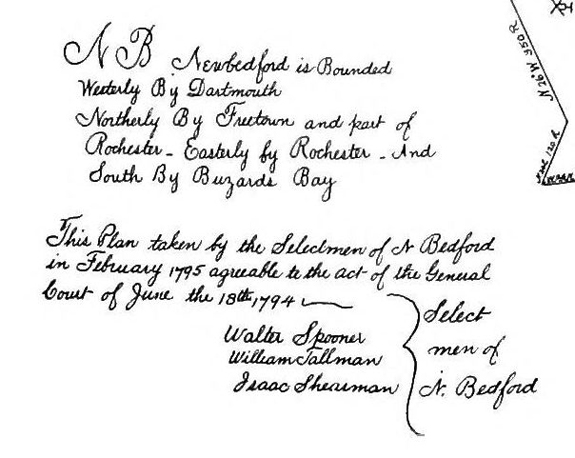 NB Newbedford is Bounded
Westerly By Dartmouth
Northerly By Freetown and part of
Rochester - Easterly by Rochester - And
South By Buzards Bay
N 26° W 350 R
120 R
This Plan taken by the Selectmen of N Bedford
in February 1795 agreeable to the act of the General
Court of June the 18th, 1794
Walter Spooner
William Tallman
Isaac Shearman
Select
men of
N. Bedford